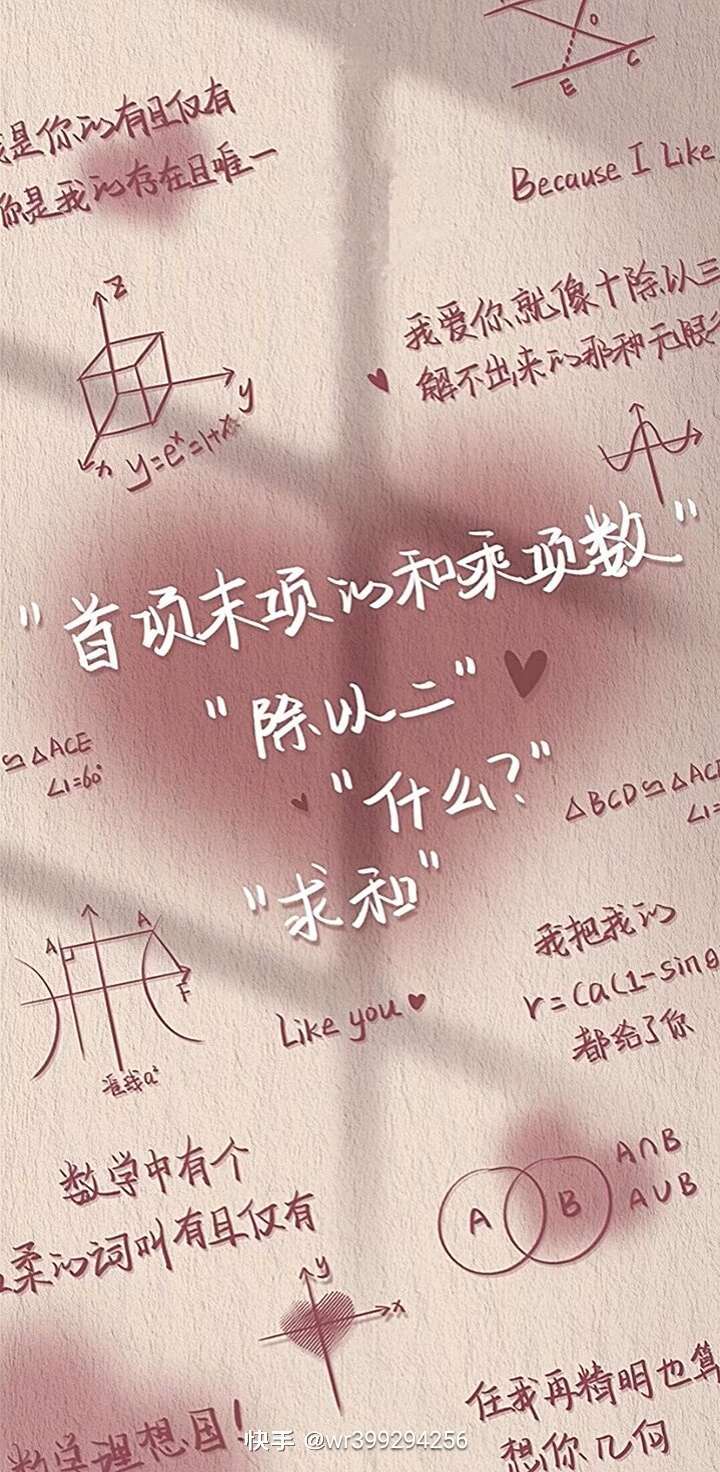 O
E
C
是你的有且仅有
你是我的存在且唯一
Because I Like
我爱你就像十除以三
解不出来的那种无限
z
y
x
y=eˣ=1+x
"首项末项的和乘项数"
"除以二"
"什么?"
"求和"
≌△ACE
∠1=60°
△BCD≌△ACE
∠1=
我把我的
r=Ca(1-sinθ
都给了你
A
A
F
准线a²
Like you
数学中有个
柔的词叫有且仅有
A∩B
A∪B
A
B
y
x
任我再精明也算
想你几何
数学理想国!
快手 @wr399294256